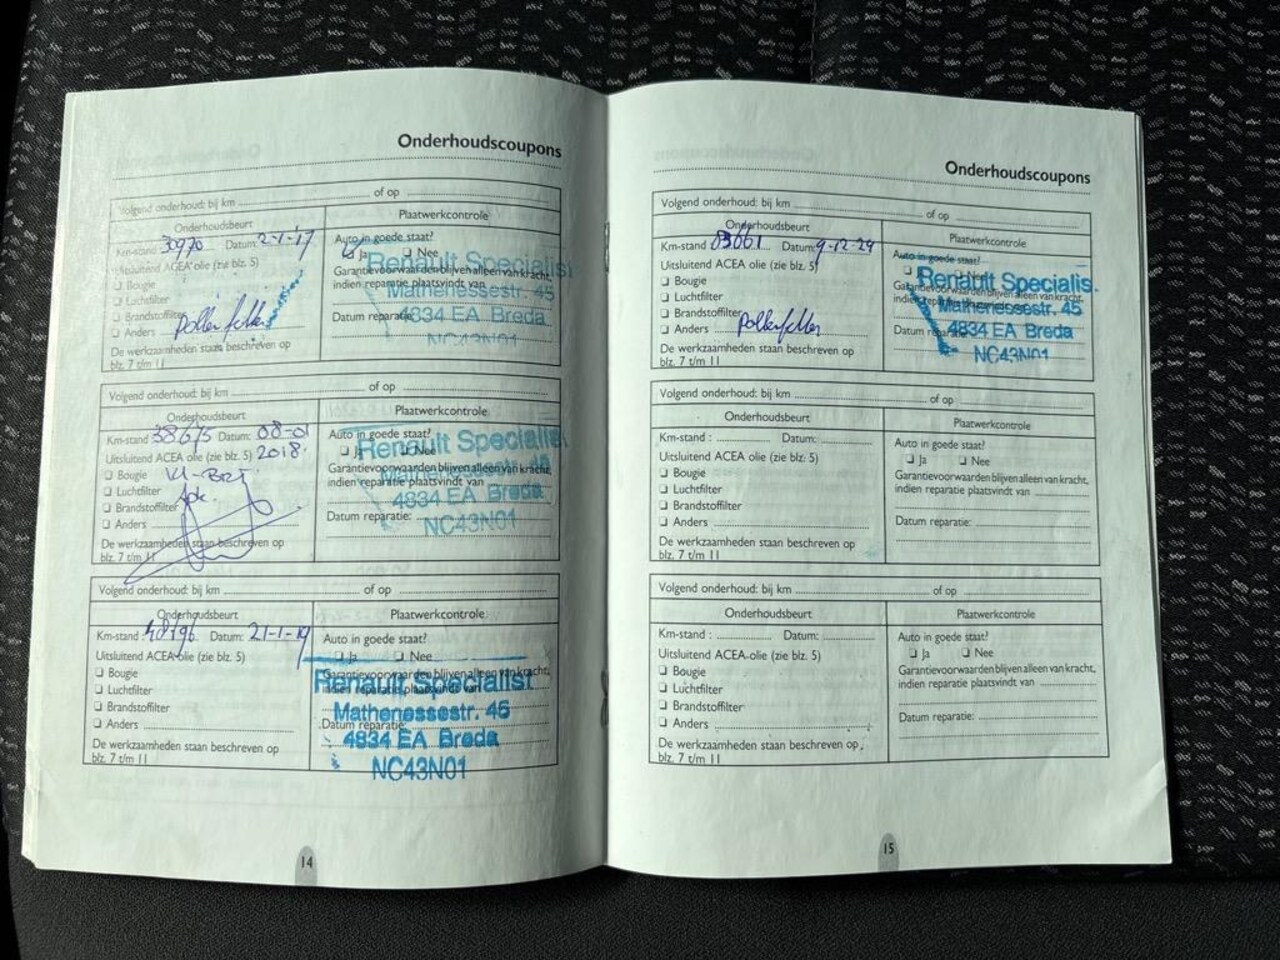 Onderhoudscoupons
Volgend onderhoud: bij km of op
Onderhoudsbeurt Plaatwerkcontrole
Km-stand 30970 Datum: 2-1-'17 Auto in goede staat?
❏ Ja ❏ Nee
Uitsluitend ACEA olie (zie blz. 5) Garantievoorwaarden blijven alleen van kracht,
❏ Bougie indien reparatie plaatsvindt van
❏ Luchtfilter
❏ Brandstoffilter Datum reparatie:
❏ Anders Pollenfilter
De werkzaamheden staan beschreven op
blz. 7 t/m 11
Renault Specialist
Mathenessestr. 45
4834 EA Breda
NC43N01
Volgend onderhoud: bij km of op
Onderhoudsbeurt Plaatwerkcontrole
Km-stand 38675 Datum: 08-01 Auto in goede staat?
Uitsluitend ACEA olie (zie blz. 5) 2018. ❏ Ja ❏ Nee
❏ Bougie Garantievoorwaarden blijven alleen van kracht,
❏ Luchtfilter indien reparatie plaatsvindt van
❏ Brandstoffilter
❏ Anders Datum reparatie:
De werkzaamheden staan beschreven op
blz. 7 t/m 11
Renault Specialist
4834 EA Breda
NC43N01
Volgend onderhoud: bij km of op
Onderhoudsbeurt Plaatwerkcontrole
Km-stand : 48196 Datum: 21-1-19 Auto in goede staat?
❏ Ja ❏ Nee
Uitsluitend ACEA-olie (zie blz. 5) Garantievoorwaarden blijven alleen van kracht,
❏ Bougie indien reparatie plaatsvindt van
❏ Luchtfilter
❏ Brandstoffilter Datum reparatie:
❏ Anders
De werkzaamheden staan beschreven op
blz. 7 t/m 11
Renault Specialist
Mathenessestr. 45
4834 EA Breda
NC43N01
14
Onderhoudscoupons
Volgend onderhoud: bij km of op
Onderhoudsbeurt Plaatwerkcontrole
Km-stand 83661 Datum: 9-12-24 Auto in goede staat?
Uitsluitend ACEA olie (zie blz. 5) ❏ Ja ❏ Nee
❏ Bougie Garantievoorwaarden blijven alleen van kracht,
❏ Luchtfilter indien reparatie plaatsvindt van
❏ Brandstoffilter
❏ Anders Pollenfilter Datum reparatie:
De werkzaamheden staan beschreven op
blz. 7 t/m 11
Renault Specialis.
Mathenessestr. 45
4834 EA Breda
NC43N01
Volgend onderhoud: bij km of op
Onderhoudsbeurt Plaatwerkcontrole
Km-stand : Datum: Auto in goede staat?
Uitsluitend ACEA olie (zie blz. 5) ❏ Ja ❏ Nee
❏ Bougie Garantievoorwaarden blijven alleen van kracht,
❏ Luchtfilter indien reparatie plaatsvindt van
❏ Brandstoffilter
❏ Anders Datum reparatie:
De werkzaamheden staan beschreven op
blz. 7 t/m 11
Volgend onderhoud: bij km of op
Onderhoudsbeurt Plaatwerkcontrole
Km-stand : Datum: Auto in goede staat?
Uitsluitend ACEA-olie (zie blz. 5) ❏ Ja ❏ Nee
❏ Bougie Garantievoorwaarden blijven alleen van kracht,
❏ Luchtfilter indien reparatie plaatsvindt van
❏ Brandstoffilter
❏ Anders Datum reparatie:
De werkzaamheden staan beschreven op
blz. 7 t/m 11
15